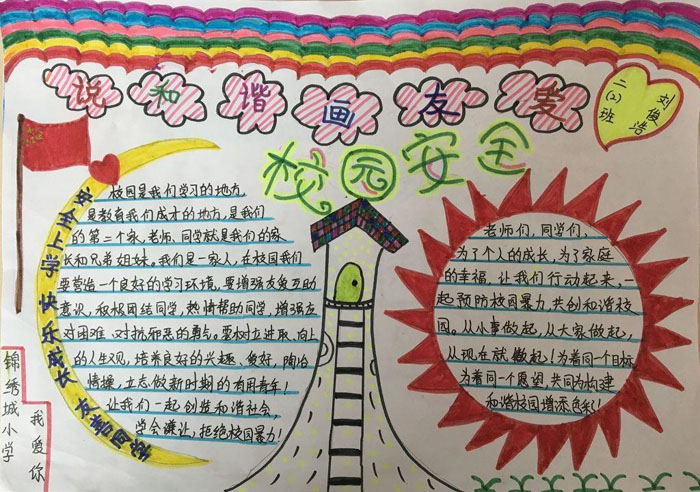 说和谐画友爱
二(2)班
刘俊浩
校园安全
安全上学 快乐成长 友善同学
校园是我们学习的地方,
是教育我们成才的地方,是我们
的第二个家,老师、同学就是我们的家
长和兄弟姐妹。我们是一家人,在校园我们
要营治一个良好的学习环境,要增强友爱互助
意识,积极团结同学,热情帮助同学,增强友
对困难、对抗邪恶的勇气。要树立进取、向上
的人生观,培养良好的兴趣、爱好,陶冶
情操,立志做新时期的有用青年!
让我们一起创造和谐社会,
学会谦让,拒绝校园暴力!
老师们,同学们,
为了个人的成长,为了家庭
的幸福,让我们行动起来,一
起预防校园暴力,共创和谐校
园。从小事做起,从大家做起,
从现在就做起!为着同一个目标
为着同一个愿望,共同为构建
和谐校园增添色彩!
锦绣城小学
我爱你